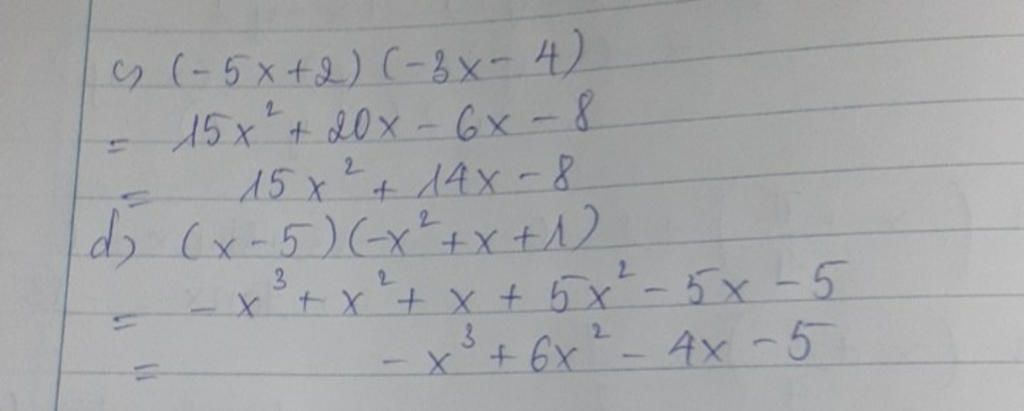 c) (-5x+2)(-3x-4)
= 15x² + 20x - 6x - 8
= 15x² + 14x - 8
d) (x-5)(-x²+x+1)
= -x³ + x² + x + 5x² - 5x - 5
= -x³ + 6x² - 4x - 5